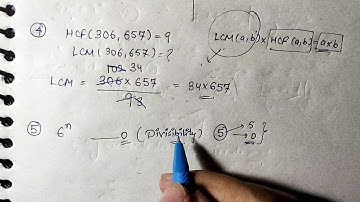 ④ HCF(306, 657) = 9
LCM(a,b) × HCF(a,b) = a×b
LCM(306, 657) = ?
102 34
LCM = 306 × 657 = 34×657
9 3
⑤ 6ⁿ ___0 (Divisibility) ⑤ → 5
→ 0 }